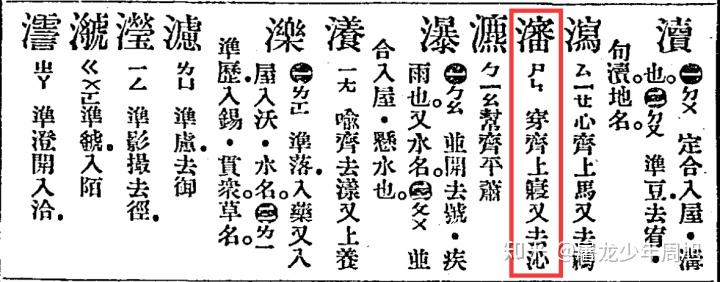 瀆 ㊀ㄉㄨ 定合入屋·溝
也。㊁ㄉㄡ 準豆去宥·
句瀆地名。
瀉 ㄙㄧㄝ心齊上馬又去禡
瀋 ㄕㄣ 穿齊上寢又去沁
瀌 ㄅㄧㄠ幫齊平蕭
瀑 ㊀ㄅㄠ 並開去號·疾
雨也又水名。㊁ㄆㄨ 並
合入屋·懸水也。
瀁 ㄧㄤ 喩齊去漾又上養
濼 ㊀ㄌㄛ 準落入藥又入
屋入沃·水名。㊁ㄌㄧ
準歷入錫·貫衆草名。
濾 ㄌㄩ 準慮去御
瀅 ㄧㄥ 準影撮去徑
㶁 ㄍㄨㄛ 準虢入陌
ㄓㄚ 準澄開入洽
知乎 @潘龙少年周旭